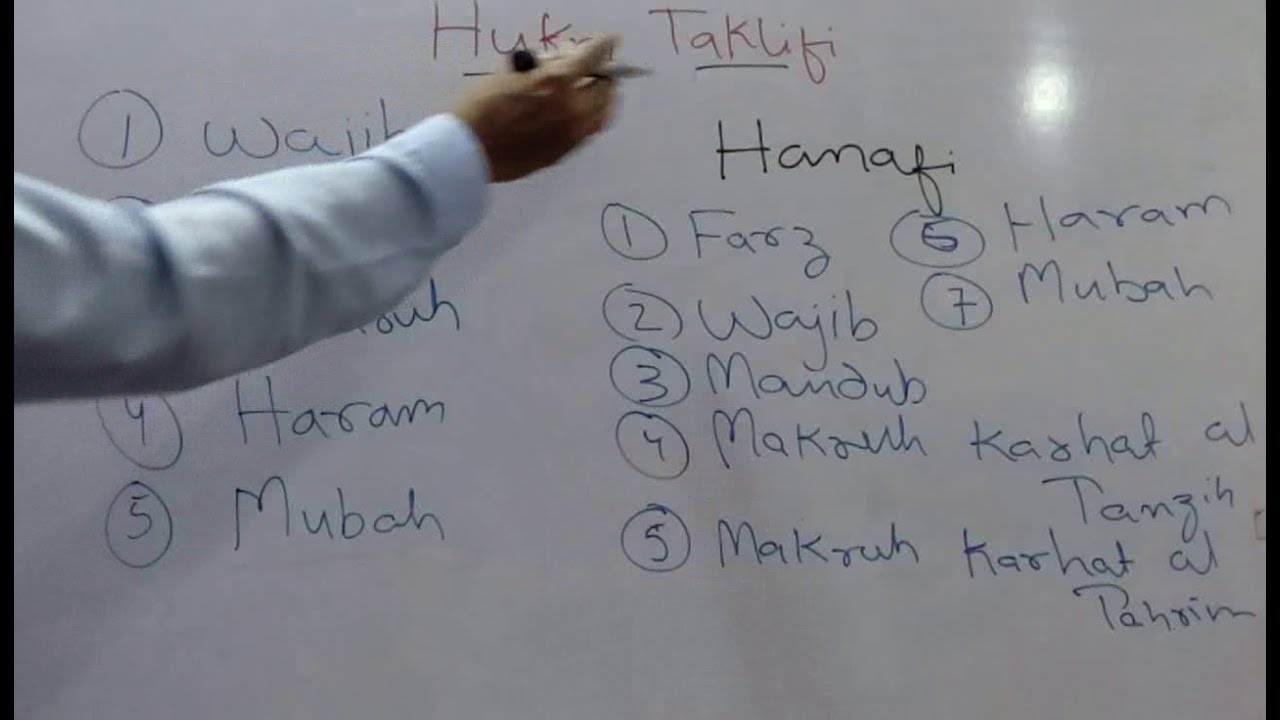 Taklifi
① Wajib
④ Haram
⑤ Mubah
Hanafi
① Farz
② Wajib
③ Mandub
④ Makruh Karhat al
Tanzih
⑤ Makruh Karhat al
Tahrim
⑥ Haram
⑦ Mubah